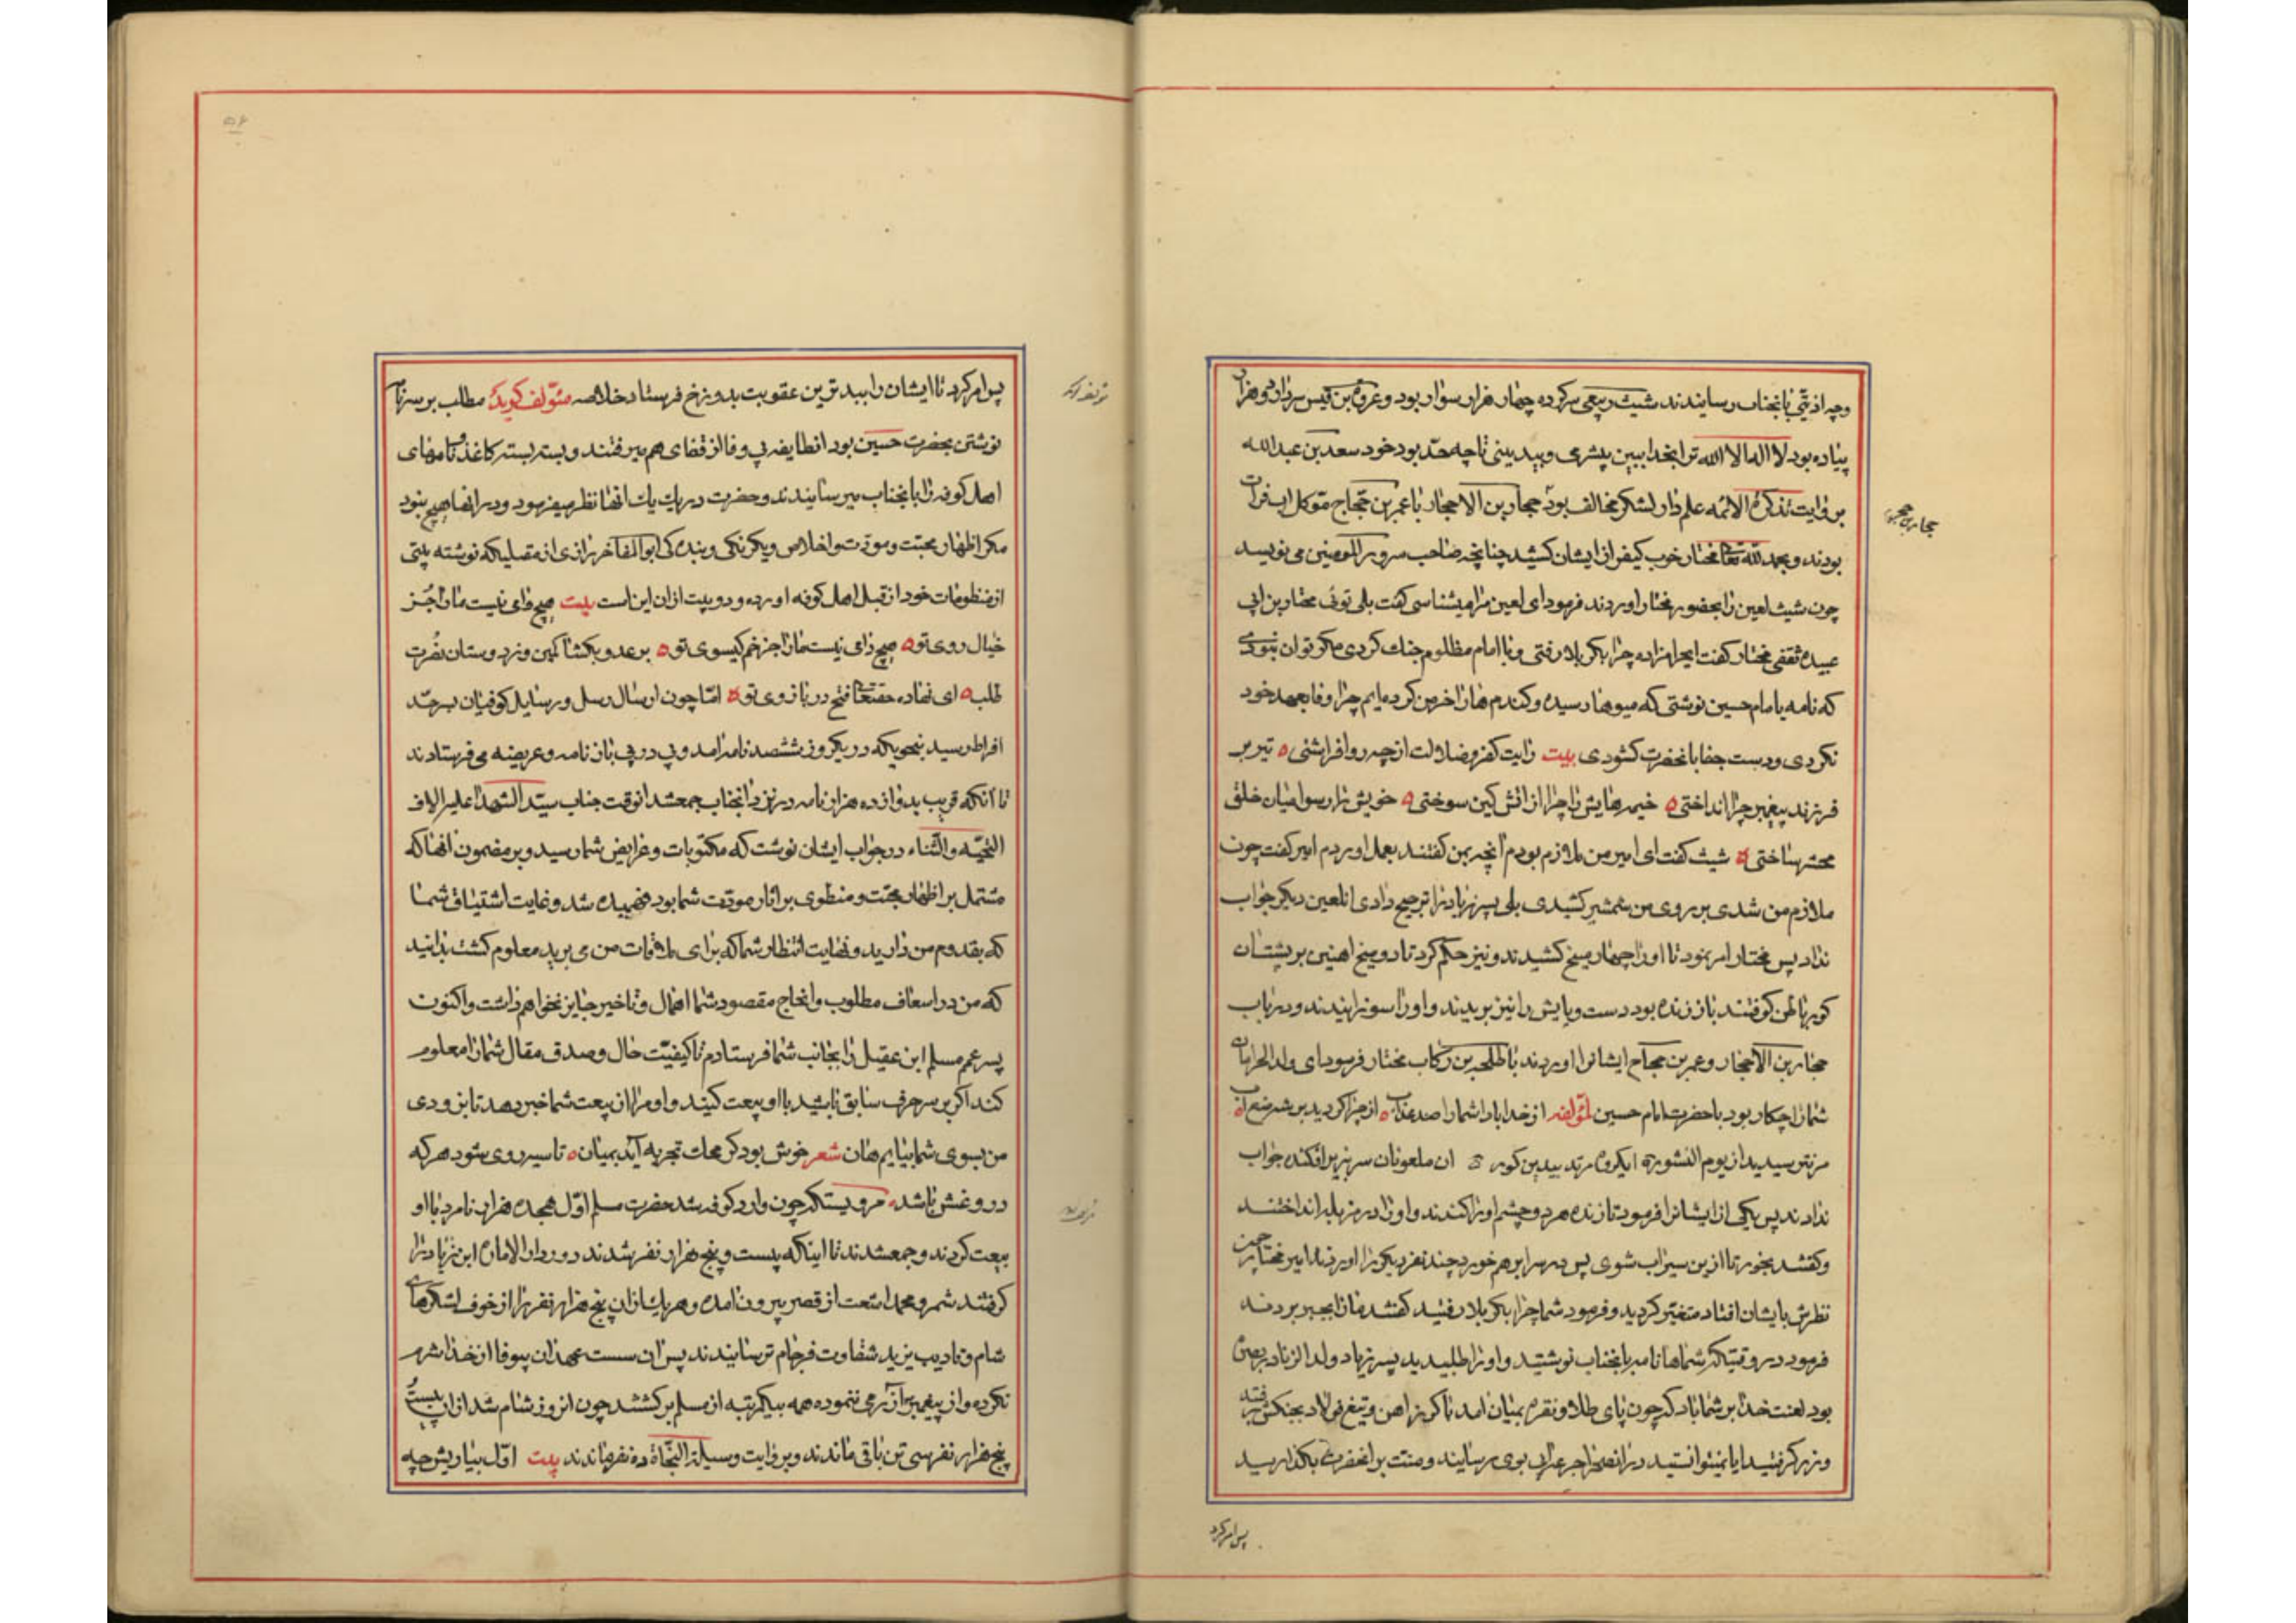 وچه اذیتی بانجناب رسانیدند شیث ربیعی سرکرده چهار هزار سوار بود و عروة بن قیس سردار دو هزار
پیاده بود لا اله الا الله ترا بخدا ببین بیشرمی و بیدینی تا چه حد بود خود سعد بن عبدالله
بروایت تذکرة الائمه علم دار لشکر مخالف بود حجار بن الاحجار با عمر بن حجاج موکل اب فرات
بودند و بحمد لله تعا مختار خوب کیفر از ایشان کشید چنانچه صاحب سرور المومنین می نویسد
چون شیث لعین را بحضور مختار اوردند فرمود ای لعین مرا میشناسی کفت بلی توئی مختار بن ابی
عبیده ثقفی مختار کفت ایحرامزاده چرا بکربلا رفتی و با امام مظلوم جنك کردی مکر توان نبودی
که نامه بامام حسین نوشتی که میوها رسیده و کندم هارا خرمن کرده ایم چرا وفا بعهد خود
نکردی و دست جفا بانحضرت کشودی بیت رایت کفر و ضلالت از چه رو افراشتی ه تیر بر
فرزند پیغمبر چرا انداختی ه خیمه هایش را چرا از اتش کین سوختی ه خویش را رسوا میان خلق
محشر ساختی ه شیث کفت ای امیر من ملازم بودم انچه بمن کفتند بعمل اوردم امیر کفت چون
ملازم من شدی بر روی من شمشیر کشیدی بلی پسر زیاد را ترجیح دادی انلعین دیکر جواب
نداد پس مختار امر نمود تا اورا چهار میخ کشیدند و نیز حکم کرد تا دو میخ اهنین بر پشت ان
کور باطن کوفتند باز زنده بود دست و پایش را نیز بریدند و اورا سوزانیدند و در باب
حجار بن الاحجار و عمر بن حجاج ایشانرا اوردند با طلحه بن رکاب مختار فرمود ای ولد الحرامان
شمارا چکار بود با حضرت امام حسین لمؤلفه از خدا بادا شمارا صد عذاب ه از چرا کردید بر شه منع اب ه
مر نترسیدید از یوم النشور ه ایکروه مرتد بیدین کور ه ان ملعونان سر بزیر افکنده جواب
ندادند پس یکی از ایشانرا فرمود تا زنده هر دو چشم اورا کندند و اورا در مزبله انداختند
و کفتند بخور تا ازین سیراب شوی پس در سرابر هم خورد چند نفر دیکررا اوردند امیر مختار چون
نظرش بایشان افتاد متغیر کردید و فرمود شما چرا بکربلا رفتید کفتند مارا بجبر بردند
فرمود در وقتیکه شماها نامه بانجناب نوشتید و اورا طلبیدید پسر زیاد ولد الزنا در بصره
بود لعنت خدا بر شما باد که چون پای طلا و نقره بمیان امد ناکزیز اهن و تیغ فولاد بجنکش رفتید
و زر کرفتید ایا نمیتوانستید در انصحرا جرعه ابی بوی برسانید و منت بر انحضرت بکذارید
پس امر کرد
حجار بن حجر
پس امر کرد تا ایشان را ببدترین عقوبت بدوزخ فرستاد خلاصه مؤلف کوید مطلب بر سر نامه
نوشتن بحضرت حسین بود انطایفه بی وفا از قفای هم میرفتند و بسته بسته کاغذ و نامهای
اهل کوفه را بانجناب میرسانیدند و حضرت در یك یك انها نظر میفرمود و در انها هیچ نبود
مکر اظهار محبت و مودت و اخلاص و یکرنکی و بنده کی ابوالمفاخر رازی از مقبلیکه نوشته بیتی
از منظومات خود از قبل اهل کوفه اورده و دو بیت از ان این است بیت هیچ رائی نیست مارا جز
خیال روی تو ه هیچ دامی نیست مارا جز خم کیسوی تو ه بر عدو بکشا کمین وز دوستان نصرت
طلب ه ای نهاده حقتعا فتح در بازوی تو ه اما چون ارسال رسل و رسایل کوفیان بسرحد
افراط رسید بنحویکه در یکروز ششصد نامه امد و پی در پی باز نامه و عریضه می فرستادند
تا آنکه قریب بدوازده هزار نامه در نزد انجناب جمعشد انوقت جناب سید الشهدا علیه الاف
التحیه والثناء در جواب ایشان نوشت که مکتوبات و عرایض شما رسید و بر مضمون انها که
مشتمل بر اظهار محبت و منطوی بر اثار مودت شما بود فهمیده شد و غایت اشتیاق شما
که بقدوم من دارید و نهایت انتظار شما که برای ملاقات من می برید معلوم کشت بدانید
که من در اسعاف مطلوب و انجاح مقصود شما اهمال و تاخیر جایز نخواهم داشت و اکنون
پسر عم مسلم ابن عقیل را بجانب شما فرستادم تا کیفیت حال و صدق مقال شمارا معلوم
کند اکر بر سر حرف سابق باشید با او بیعت کنید و او مرا از بیعت شما خبر دهد تا بزودی
من بسوی شما بیایم هان شعر خوش بود کر محك تجربه آید بمیان ه تا سیه روی شود هر که
در او غش باشد ه مرویستکه چون وارد کوفه شد حضرت مسلم اول هجده هزار نامرد با او
بیعت کردند و جمعشدند تا اینکه بیست و پنج هزار نفر شدند دور دار الاماره ابن زیاد را
کرفتند شمر و محمد اشعث از قصر بیرون امده و هر یك از ان پنج هزار نفر را از خوف لشکرهای
شام و تادیب یزید شقاوت فرجام ترسانیدند پس ان سست عهدان بیوفا از خدا شرم
نکرده و از پیغمبر آزرمی ننموده همه بیکمرتبه از مسلم برکشتند چون انروز شام شد از ان بیست
پنج هزار نفر سی تن باقی ماندند و بروایت وسیلة النجاة ده نفر ماندند بیت اول بیاریش چه